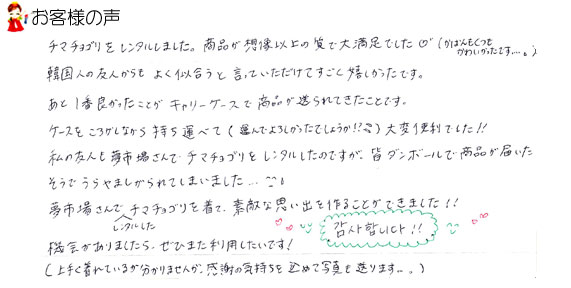 お客様の声
チマチョゴリをレンタルしました。商品が想像以上の質で大満足でした♡(かばんもくつもかわいかったです...。)
韓国人の友人からもよく似合うと言っていただけてすごく嬉しかったです。
あと1番良かったことがキャリーケースで商品が送られてきたことです。
ケースをころがしながら持ち運べて(運んでよろしかったでしょうか!?)大変便利でした!!
私の友人も夢市場さんでチマチョゴリをレンタルしたのですが、皆ダンボールで商品が届いた
そうでうらやましがられてしまいました...
夢市場さんでレンタルしたチマチョゴリを着て、素敵な思い出を作ることができました!!
감사합니다!!
機会がありましたら、ぜひまた利用したいです!
(上手く着れているか分かりませんが、感謝の気持ちを込めて写真も送ります...。)